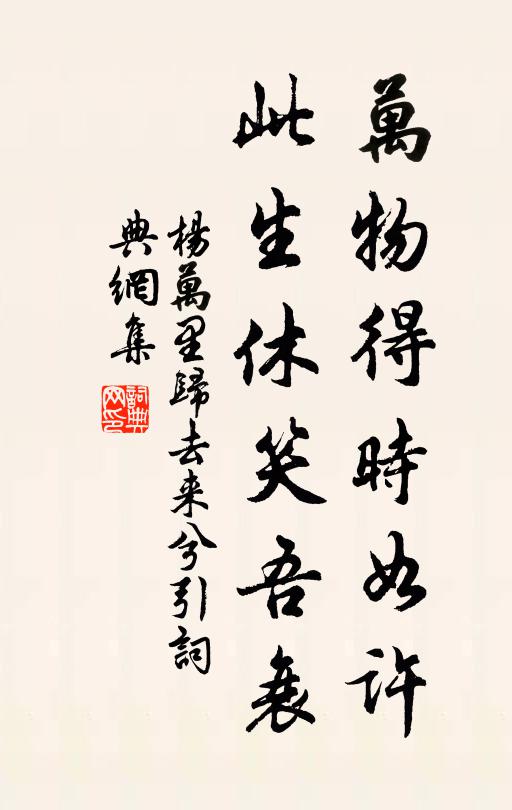 萬物得時如許
此生休笑吾衰
楊萬里歸去来兮引詞
典網集
詞典
网印